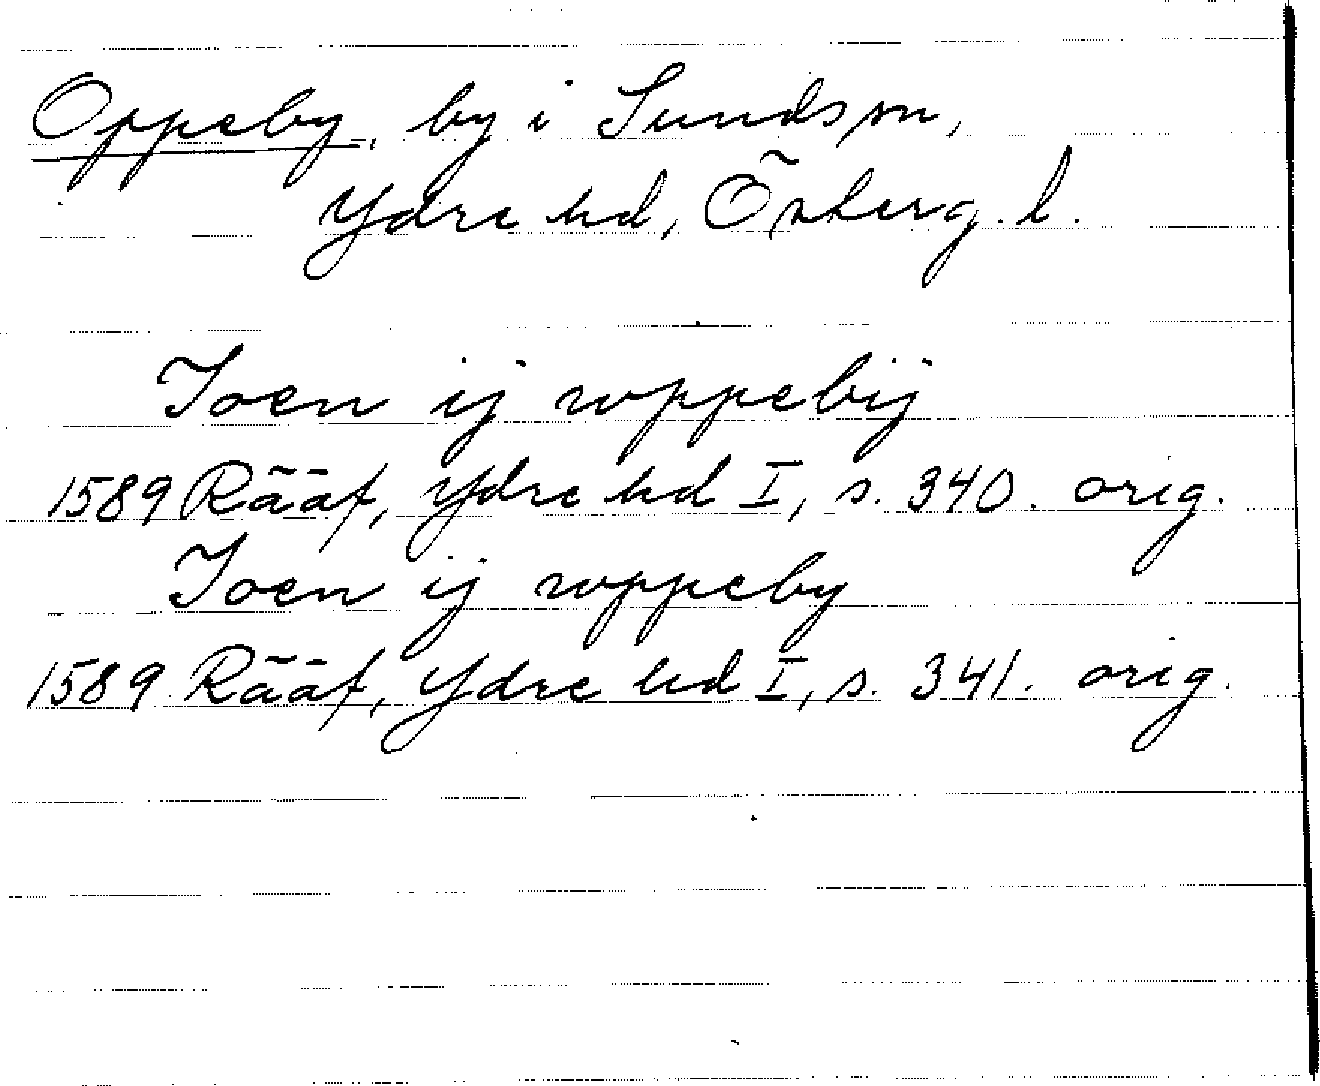 Oppeby, by i Sunds sn,
Ydre hd, Österg. l.
Joen ij woppebij
1589 Rääf, Ydre hd I, s. 340. orig.
Joen ij woppeby
1589 Rääf, Ydre hd I, s. 341. orig.